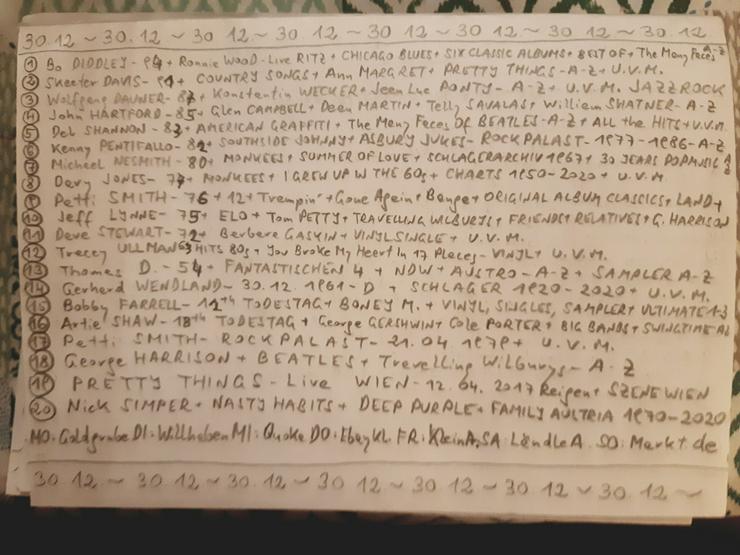 30.12 ~ 30.12 ~ 30.12 ~ 30.12 ~ 30.12 ~ 30.12 ~ 30.12 ~ 30.12
① Bo DIDDLEY - 94 + Ronnie Wood - Live RITZ + CHICAGO BLUES + SIX CLASSIC ALBUMS + BEST OF + The Many Faces A-Z
② Skeeter DAVIS - 91 + COUNTRY SONGS + Ann MARGRET + PRETTY THINGS - A-Z + U.V.M.
③ Wolfgang DAUNER - 87 + Konstantin WECKER + Jean Luc PONTY - A-Z + U.V.M. JAZZROCK
④ John HARTFORD - 85 + Glen CAMPBELL + Dean MARTIN + Telly SAVALAS + William SHATNER - A-Z
⑤ Del SHANNON - 83 + AMERICAN GRAFFITI + The Many Faces Of BEATLES - A-Z + ALL the HITS + U.V.M.
⑥ Kenny PENTIFALLO - 82 + SOUTHSIDE JOHNNY + ASBURY JUKES - ROCKPALAST - 1977 - 1986 - A-Z
⑦ Michael NESMITH - 80 + MONKEES + SUMMER OF LOVE + SCHLAGERARCHIV 1967 + 30 YEARS POPMUSIC A-Z
⑧ Davy JONES - 77 + MONKEES + I GREW UP IN THE 60s + CHARTS 1950 - 2020 + U.V.M.
⑨ Patti SMITH - 76 + 12 + Trampin' + Gone Again + Banga + ORIGINAL ALBUM CLASSICS + LAND +
⑩ Jeff LYNNE - 75 + ELO + Tom PETTY + TRAVELLING WILBURYS + FRIENDS + RELATIVES + G. HARRISON
⑪ Dave STEWART - 72 + Barbara GASKIN + VINYLSINGLE + U.V.M.
⑫ Tracey ULLMAN 63 HITS 80s + You Broke My Heart In 17 Places - VINYL + U.V.M.
⑬ Thomas D. - 54 + FANTASTISCHEN 4 + NDW + AUSTRO - A-Z + SAMPLER A-Z
⑭ Gerhard WENDLAND - 30.12.1961 - D + SCHLAGER 1920 - 2020 + U.V.M.
⑮ Bobby FARRELL - 12th TODESTAG + BONEY M. + VINYL, SINGLES, SAMPLER + ULTIMATE 1-3
⑯ Artie SHAW - 18th TODESTAG + George GERSHWIN + Cole PORTER + BIG BANDS + SWINGTIME
⑰ Patti SMITH - ROCKPALAST - 21.04.1979 + U.V.M.
⑱ George HARRISON + BEATLES + Travelling Wilburys - A-Z
⑲ PRETTY THINGS - Live WIEN - 12.04.2017 Reigen + SZENE WIEN
⑳ Nick SIMPER + NASTY HABITS + DEEP PURPLE + FAMILY AUSTRIA 1970 - 2020
MO: Goldgrube DI: Willhaben MI: Quoka DO: Ebay KL. FR: KleinA. SA: LändleA. SO: Markt.de
30.12 ~ 30.12 ~ 30.12 ~ 30.12 ~ 30.12 ~ 30.12 ~ 30.12 ~